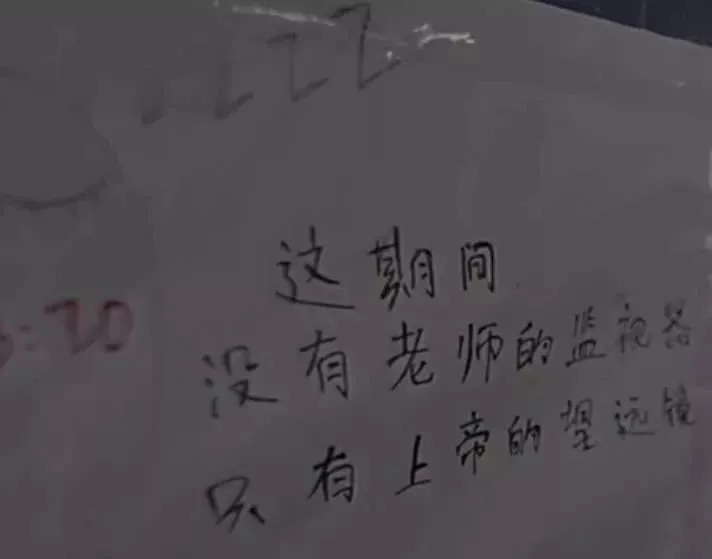 ZZZ
:20
这期间
没有老师的监视器
只有上帝的望远镜